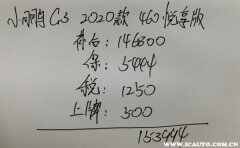 小鹏G3 2020款 460悦享版
裸台：146800
保：5494
税：1250
上牌：500
153944
狮城
WWW.ICAUTO.COM.CN